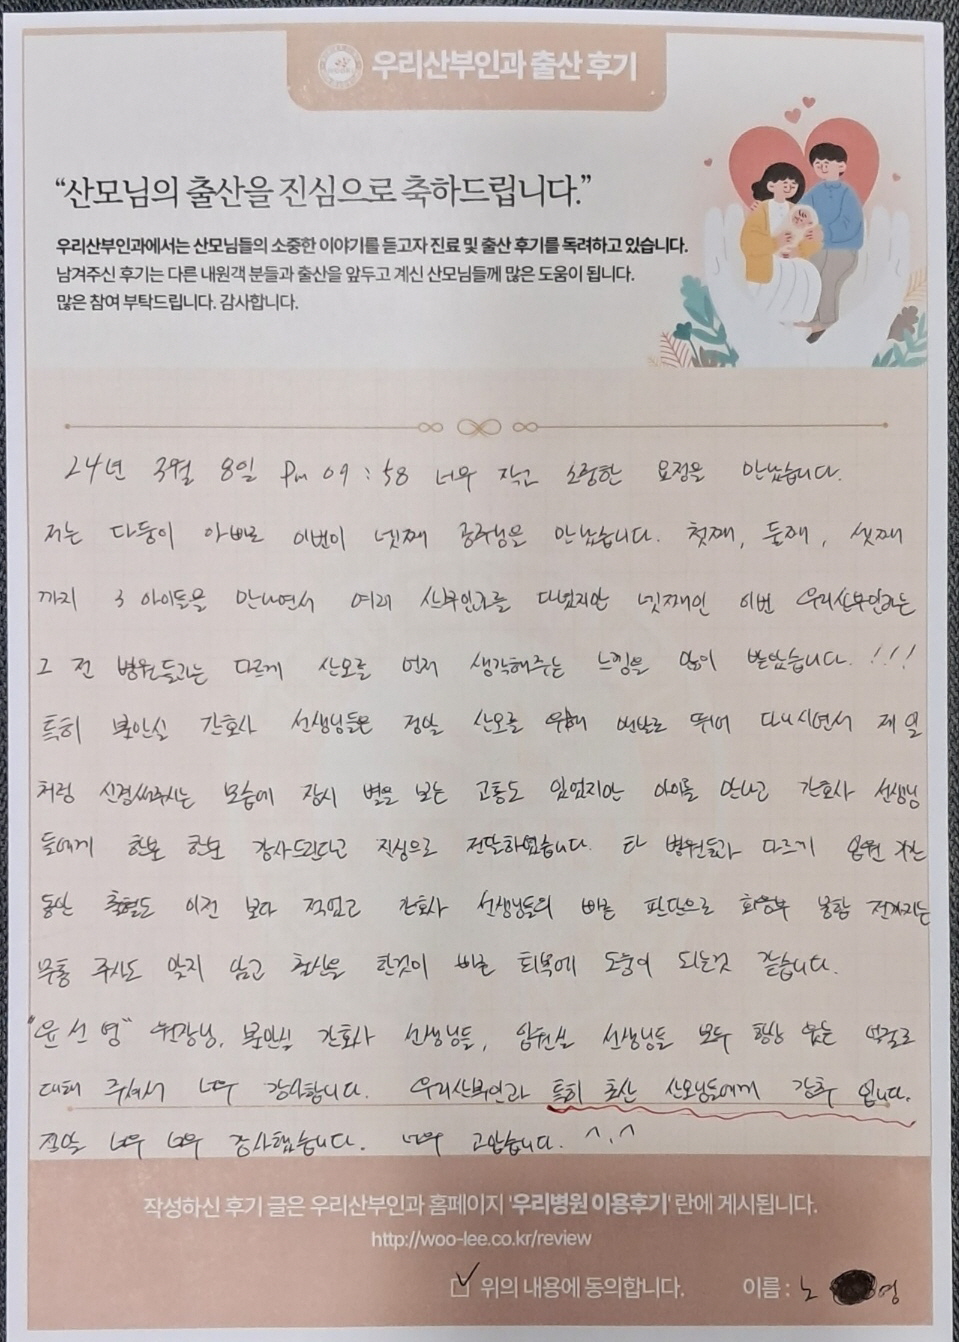 우리산부인과 출산 후기
“산모님의 출산을 진심으로 축하드립니다.”
우리산부인과에서는 산모님들의 소중한 이야기를 듣고자 진료 및 출산 후기를 독려하고 있습니다.
남겨주신 후기는 다른 내원객 분들과 출산을 앞두고 계신 산모님들께 많은 도움이 됩니다.
많은 참여 부탁드립니다. 감사합니다.
24년 3월 8일 Pm 09:58 너무 작고 소중한 요정을 만났습니다.
저는 다둥이 아빠로 이번이 넷째 공주님을 만났습니다. 첫째, 둘째, 셋째
까지 3 아이들을 만나면서 여러 산부인과를 다녔지만 넷째인 이번 우리산부인과는
그 전 병원들과는 다르게 산모를 먼저 생각해주는 느낌을 많이 받았습니다.!!!
특히 분만실 간호사 선생님들은 정말 산모를 위해 맨발로 뛰어 다니시면서 제 일
처럼 신경써주시는 모습에 잠시 별을 보는 고통도 있었지만 아이를 만나고 간호사 선생님
들에게 한분 한분 감사드린다고 진심으로 전달하였습니다. 타 병원들과 다르게 입원 하는
동안 출혈도 이전 보다 적었고 간호사 선생님들의 빠른 판단으로 회음부 봉합 전까지는
무통 주사도 맞지 않고 출산을 한것이 빠른 회복에 도움이 되는것 같습니다.
"윤선영" 원장님, 분만실 간호사 선생님들, 입원실 선생님들 모두 항상 웃는 얼굴로
대해 주셔서 너무 감사합니다. 우리산부인과 특히 초산 산모님들에게 강추 입니다.
정말 너무 너무 감사했습니다. 너무 고맙습니다. ^.^
작성하신 후기 글은 우리산부인과 홈페이지 '우리병원 이용후기' 란에 게시됩니다.
http://woo-lee.co.kr/review
위의 내용에 동의합니다. 이름 : 노 영